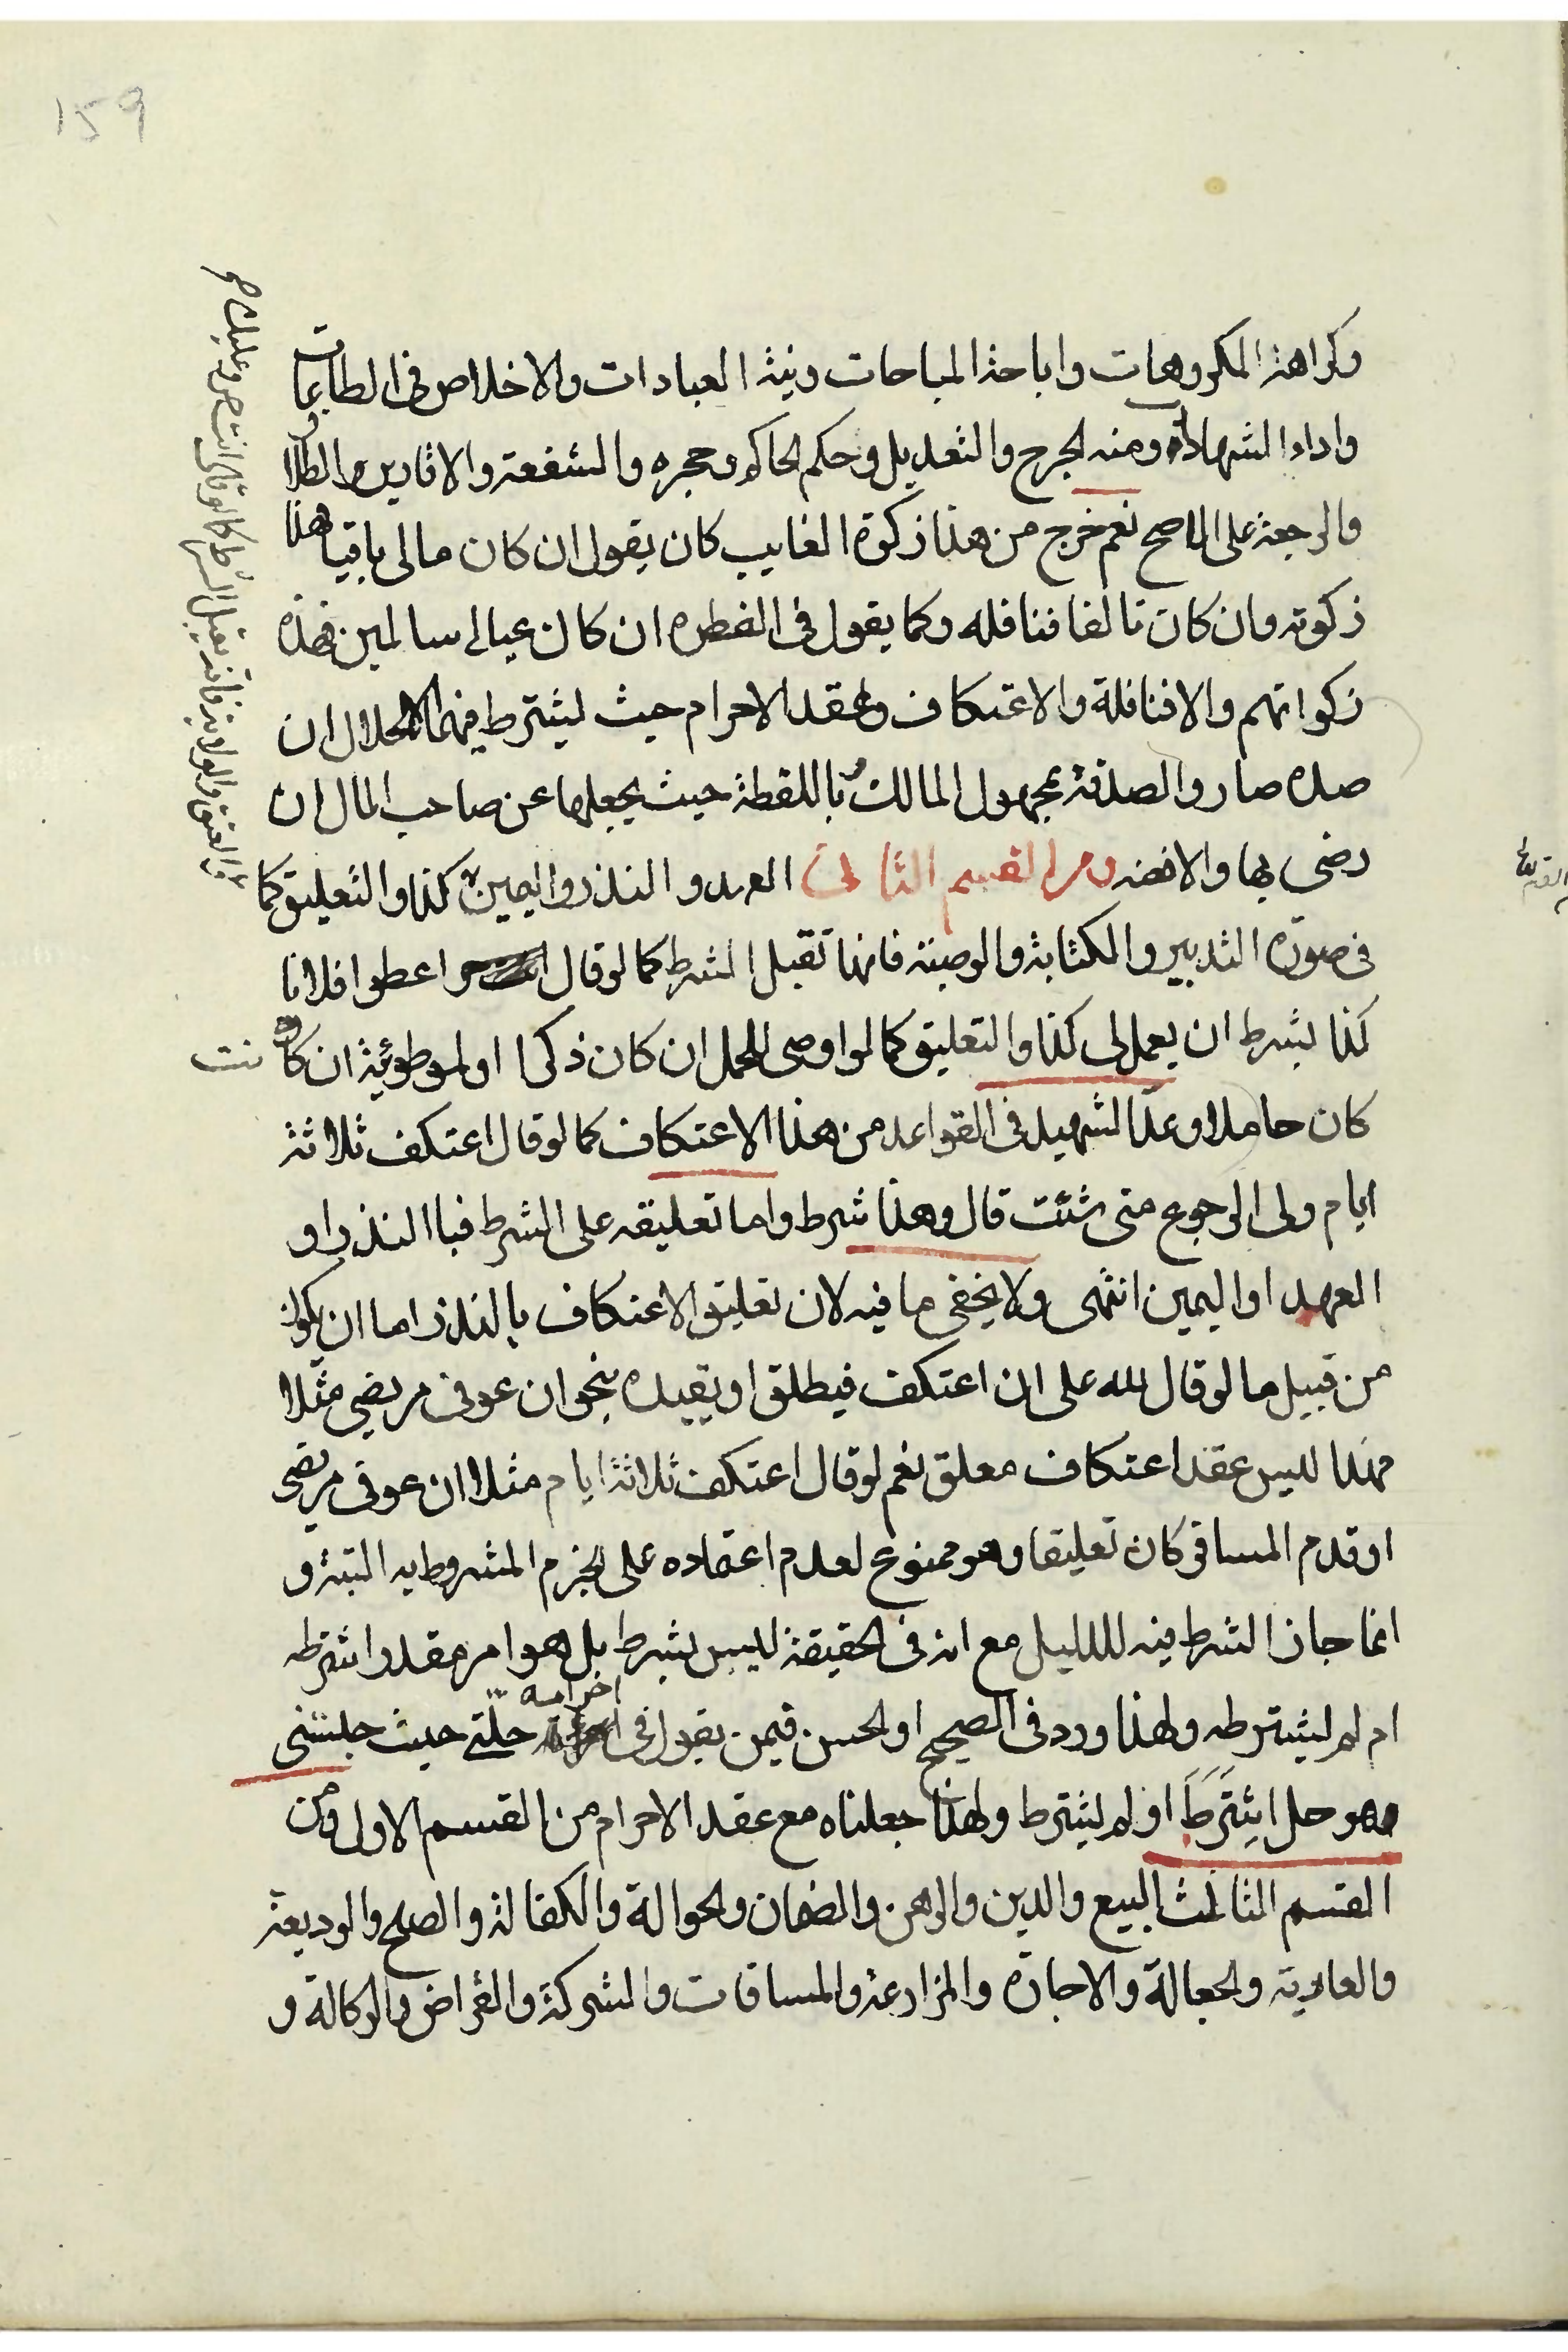 159
وكراهة المكروهات واباحة المباحات ونية العبادات والاخلاص في الطاعات
واداء الشهادة ومنه الجرح والتعديل وحكم الحاكم وحجره والشفعة والاقارير والطلاق
والرجعة على الاصح نعم خرج من هذا زكوة الغايب كان يقول ان كان مالي باقيا هذا
زكوته وان كان تالفا فنافله وكما يقول في الفطره ان كان عيالي سالمين فهذه
زكواتهم والا فنافلة والاعتكاف وعقد الاحرام حيث ليشترط فيهما الاحلال ان
صده صار والصدقة بمجهول المالك باللقطة حيث يجعلها عن صاحب المال ان
رضي بها والا فعنه ومن القسم الثاني العهد والنذر واليمين كذا والتعليق كما
في صورة التدبير والكتابة والوصية فانها تقبل الشرط كما لو قال اعطوا فلانا
كذا بشرط ان يعمل لي كذا والتعليق كما لو اوصى للحمل ان كان ذكرا او لموطوئية ان كانت
كان حاملا وعد الشهيد في القواعد من هذا الاعتكاف كما لو قال اعتكف ثلاثة
ايام ولي الرجوع متى شئت قال وهذا شرط واما تعليقه على الشرط فبا النذر او
العهد او اليمين انتهى ولا يخفى ما فيه لان تعليق الاعتكاف بالنذر اما ان يكون
من قبيل ما لو قال لله علي ان اعتكف فيطلق او يقيده بنحو ان عوفي مريضي مثلا
فهذا ليس عقد اعتكاف معلق نعم لو قال اعتكف ثلاثة ايام مثلا ان عوفي مريضي
او قدم المسافر كان تعليقا وهو ممنوع لعدم اعتماده على الجزم المشروط به النية و
انما جاز الشرط فيه للدليل مع انه في الحقيقة ليس بشرط بل هو امر مقدر اشترطه
ام لم ليشترطه ولهذا ورد في الصحيح او الحسن فيمن يقول في احرامه حلني حيث حبستني
وهو حل اشترط او لم ليشترط ولهذا جعلناه مع عقد الاحرام من القسم الاول ومن
القسم الثالث البيع والدين والرهن والضمان والحوالة والكفالة والصلح والوديعة
والعارية والجعالة والاجارة والمزارعة والمساقات والشركة والقراض والوكالة و